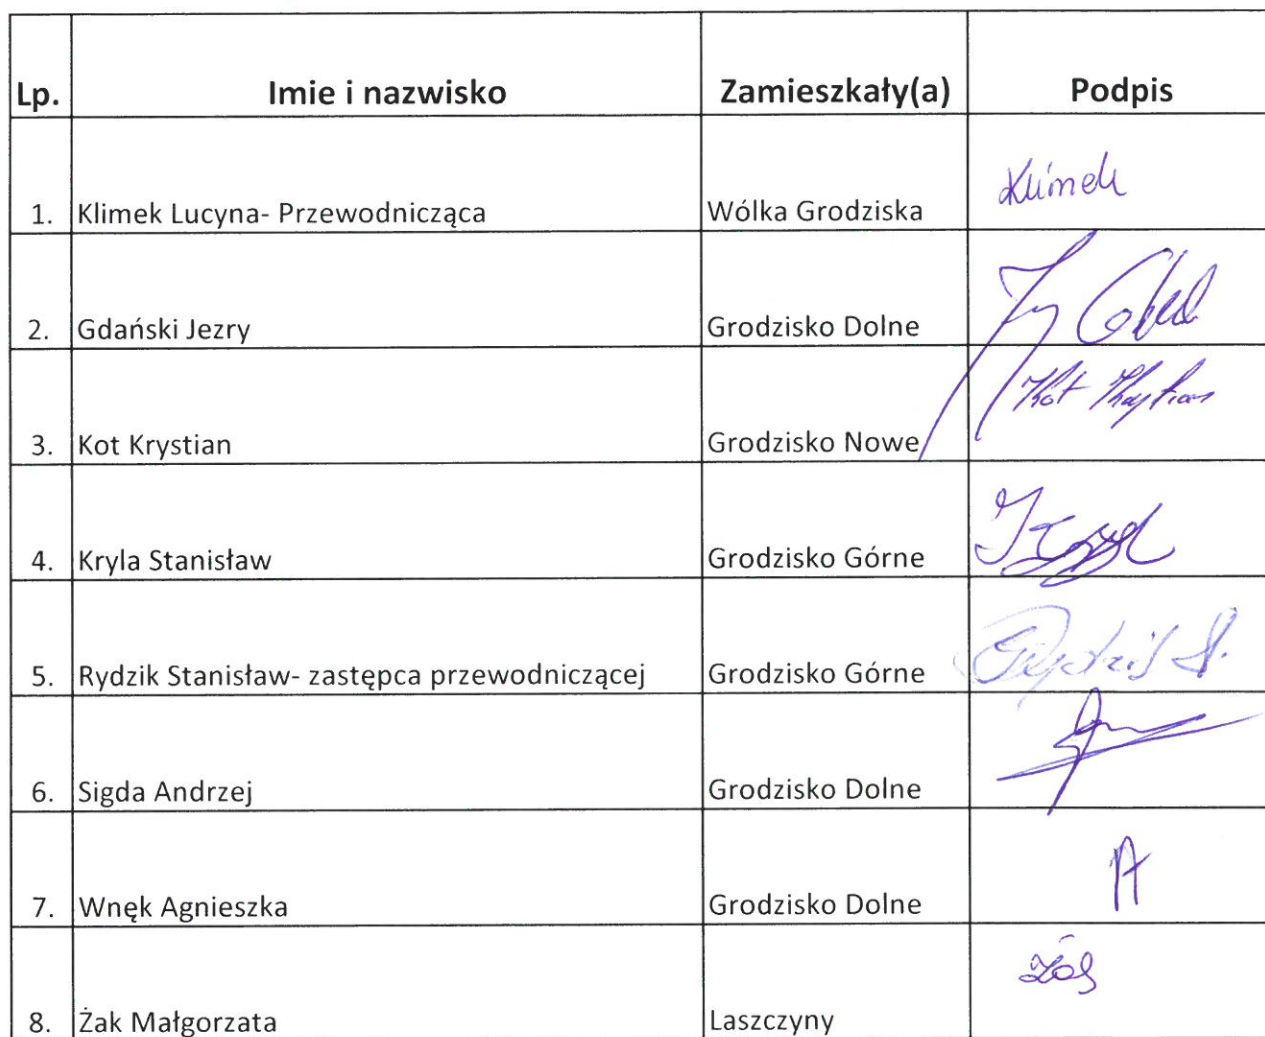 Lp. Imie i nazwisko Zamieszkały(a) Podpis
1. Klimek Lucyna- Przewodnicząca Wólka Grodziska Klimek
2. Gdański Jezry Grodzisko Dolne
3. Kot Krystian Grodzisko Nowe Kot Krystian
4. Kryla Stanisław Grodzisko Górne
5. Rydzik Stanisław- zastępca przewodniczącej Grodzisko Górne Rydzik S.
6. Sigda Andrzej Grodzisko Dolne
7. Wnęk Agnieszka Grodzisko Dolne
8. Żak Małgorzata Laszczyny